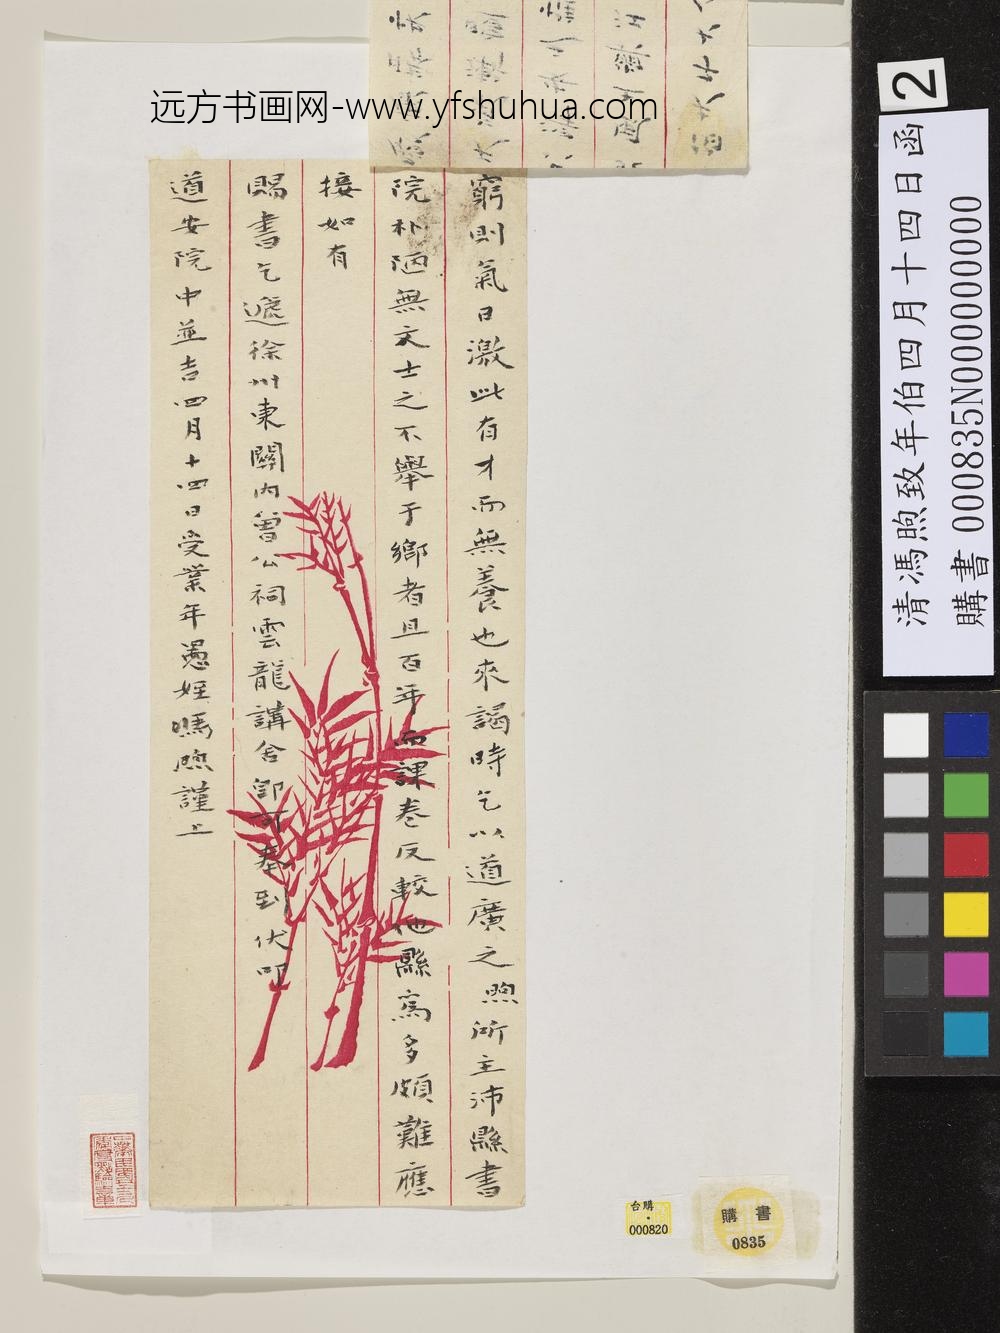 远方书画网-www.yfshuhua.com
窮則氣日激此有才而無養也來謁時乞以道廣之煦所主沛縣書
院朴陋無文士之不舉于鄉者且百年而課卷反較他縣為多頗難應
接如有
賜書乞遞徐州東關內曾公祠雲龍講舍即可奉到伏叩
道安院中並吉四月十四日受業年愚姪馮煦謹上
2
清馮煦致年伯四月十四日函
購書 000835N000000000
台購
000820
購書
0835